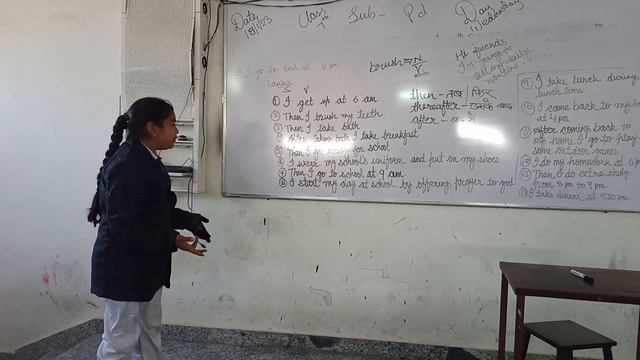 Date 18/1/23
Class 7th
Sub - Pd
Day Wednesday
Hi friends
I'm going to
tell my daily
routine.
I go to bed at 10 pm
Thanks
brush = N/V
S V
① I get up at 6 am
② Then I brush my teeth
③ Then I take bath
④ After taken bath I take breakfast
⑤ Then I get ready for school
⑥ I wear my school's uniform and put on my shoes.
⑦ Then I go to school at 9 am
⑧ I start my day at school by offering prayer to god
then - तब / फिर
thereafter - उसके बाद
after - बाद में
⑨ I take lunch during
lunch time
⑩ I came back to my
at 4 pm
⑪ after coming back to
my home I go to play
some outdoor games
⑫ I do my homework at 6
⑬ Then I do extra study
from 8 pm to 9 pm.
⑭ I take dinner at 9:30 pm.